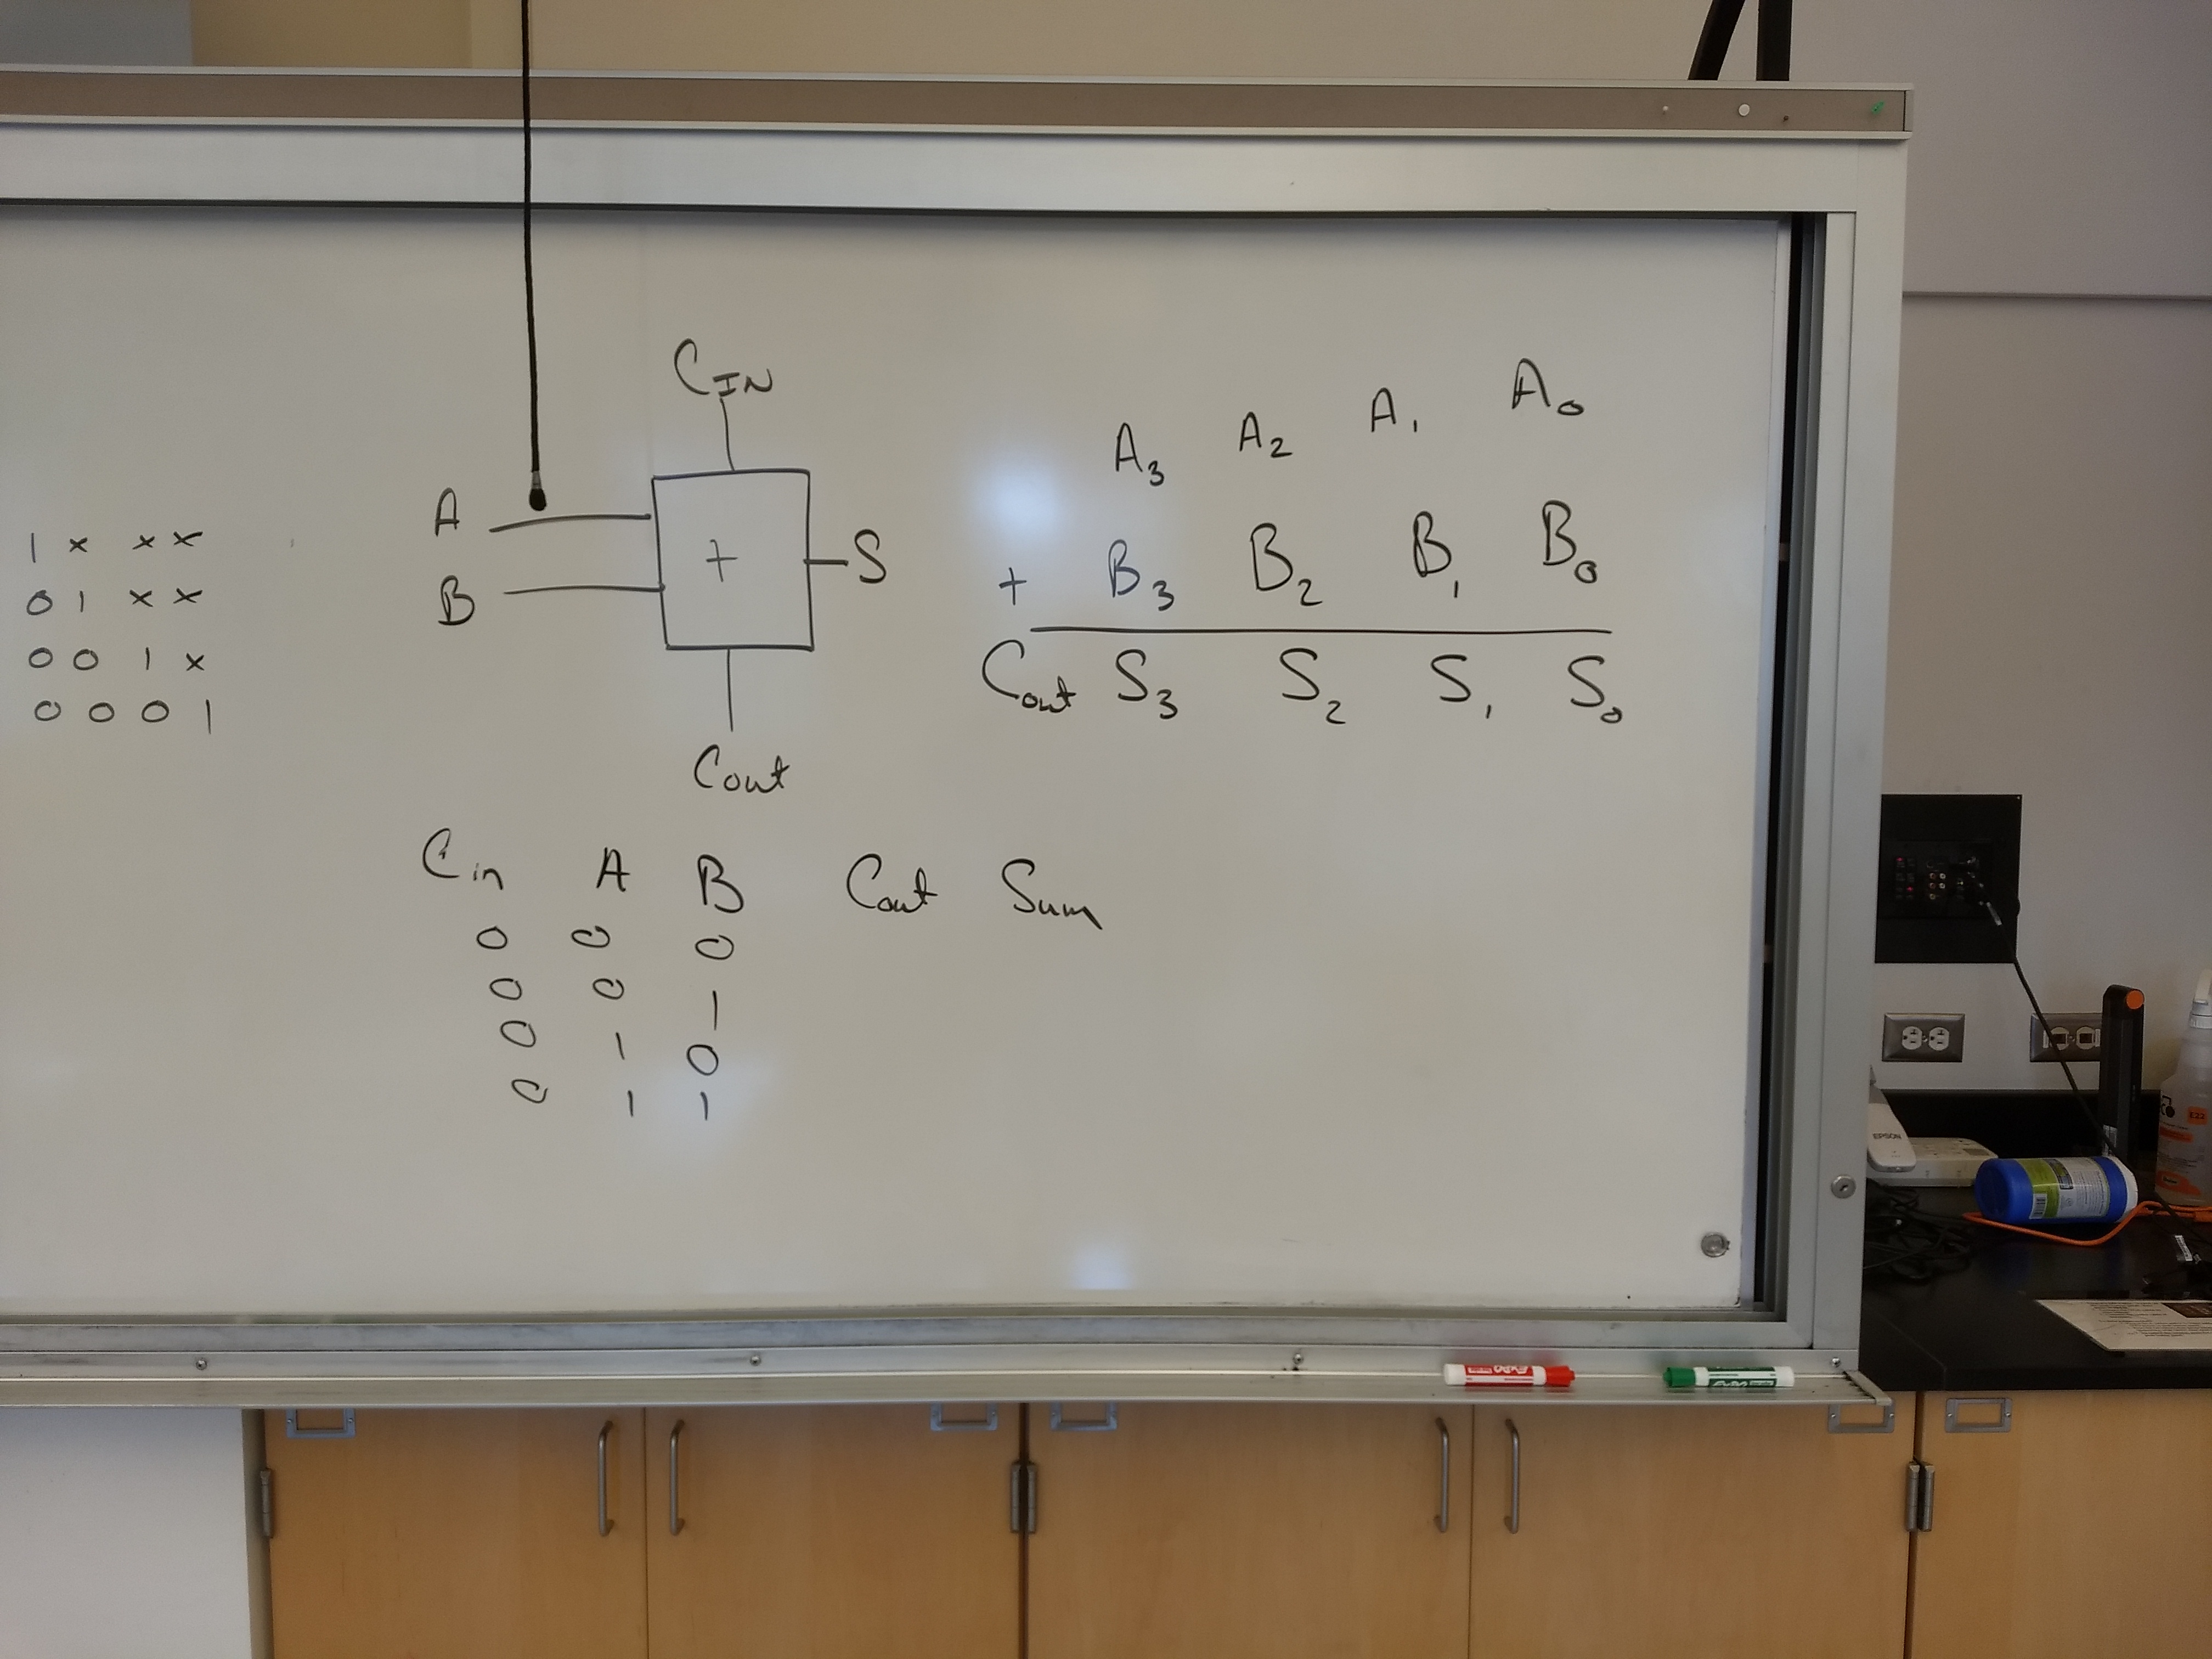 1 x x x
0 1 x x
0 0 1 x
0 0 0 1
CIN
A
B
+
S
Cout
A3 A2 A1 A0
+ B3 B2 B1 B0
Cout S3 S2 S1 S0
Cin A B Cout Sum
0 0 0
0 0 1
0 1 0
0 1 1
EXPO
EXPO
EPSON